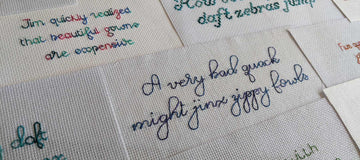 Jim quickly realized
that beautiful gowns
are expensive
How
daft zebras jump
A very bad quack
might jinx zippy fowls
daft
with